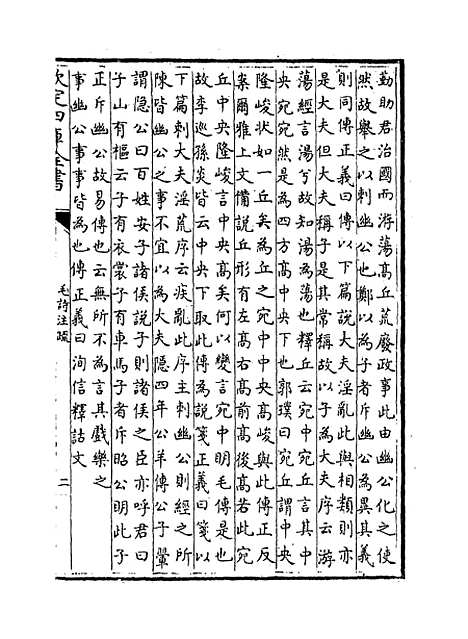 勤助君治國而游蕩髙丘荒廢政事此由幽公化之使
然故舉之以刺幽公也鄭以為子者斥幽公為異其義
則同傳正義曰傳以下篇説大夫淫亂此與相類則亦
是大夫但大夫稱子是其常稱故以子為大夫序云游
蕩經言湯兮故知湯為蕩也釋丘云宛中宛丘言其中
央宛宛然是為四方髙中央下也郭璞曰宛丘謂中央
隆峻狀如一丘矣為丘之宛中中央髙峻與此傳正反
案爾雅上文備説丘形有左髙右髙前髙後髙若此宛
丘中央隆峻言中央髙矣何以變言宛中明毛傳是也
故李巡孫炎皆云中央下取此傳為説箋正義曰箋以
下篇刺大夫淫荒序云疾亂此序主刺幽公則經之所
陳皆幽公之事不宜以為大夫隠四年公羊傳公子翬
謂隠公曰百姓安子諸侯説子則諸侯之臣亦呼君曰
子山有樞云子有衣裳子有車馬子者斥昭公明此子
正斥幽公故易傳也云無所不為言其戲樂之
事幽公事事皆為也傳正義曰洵信釋詁文
欽定四庫全書
毛詩注疏
二